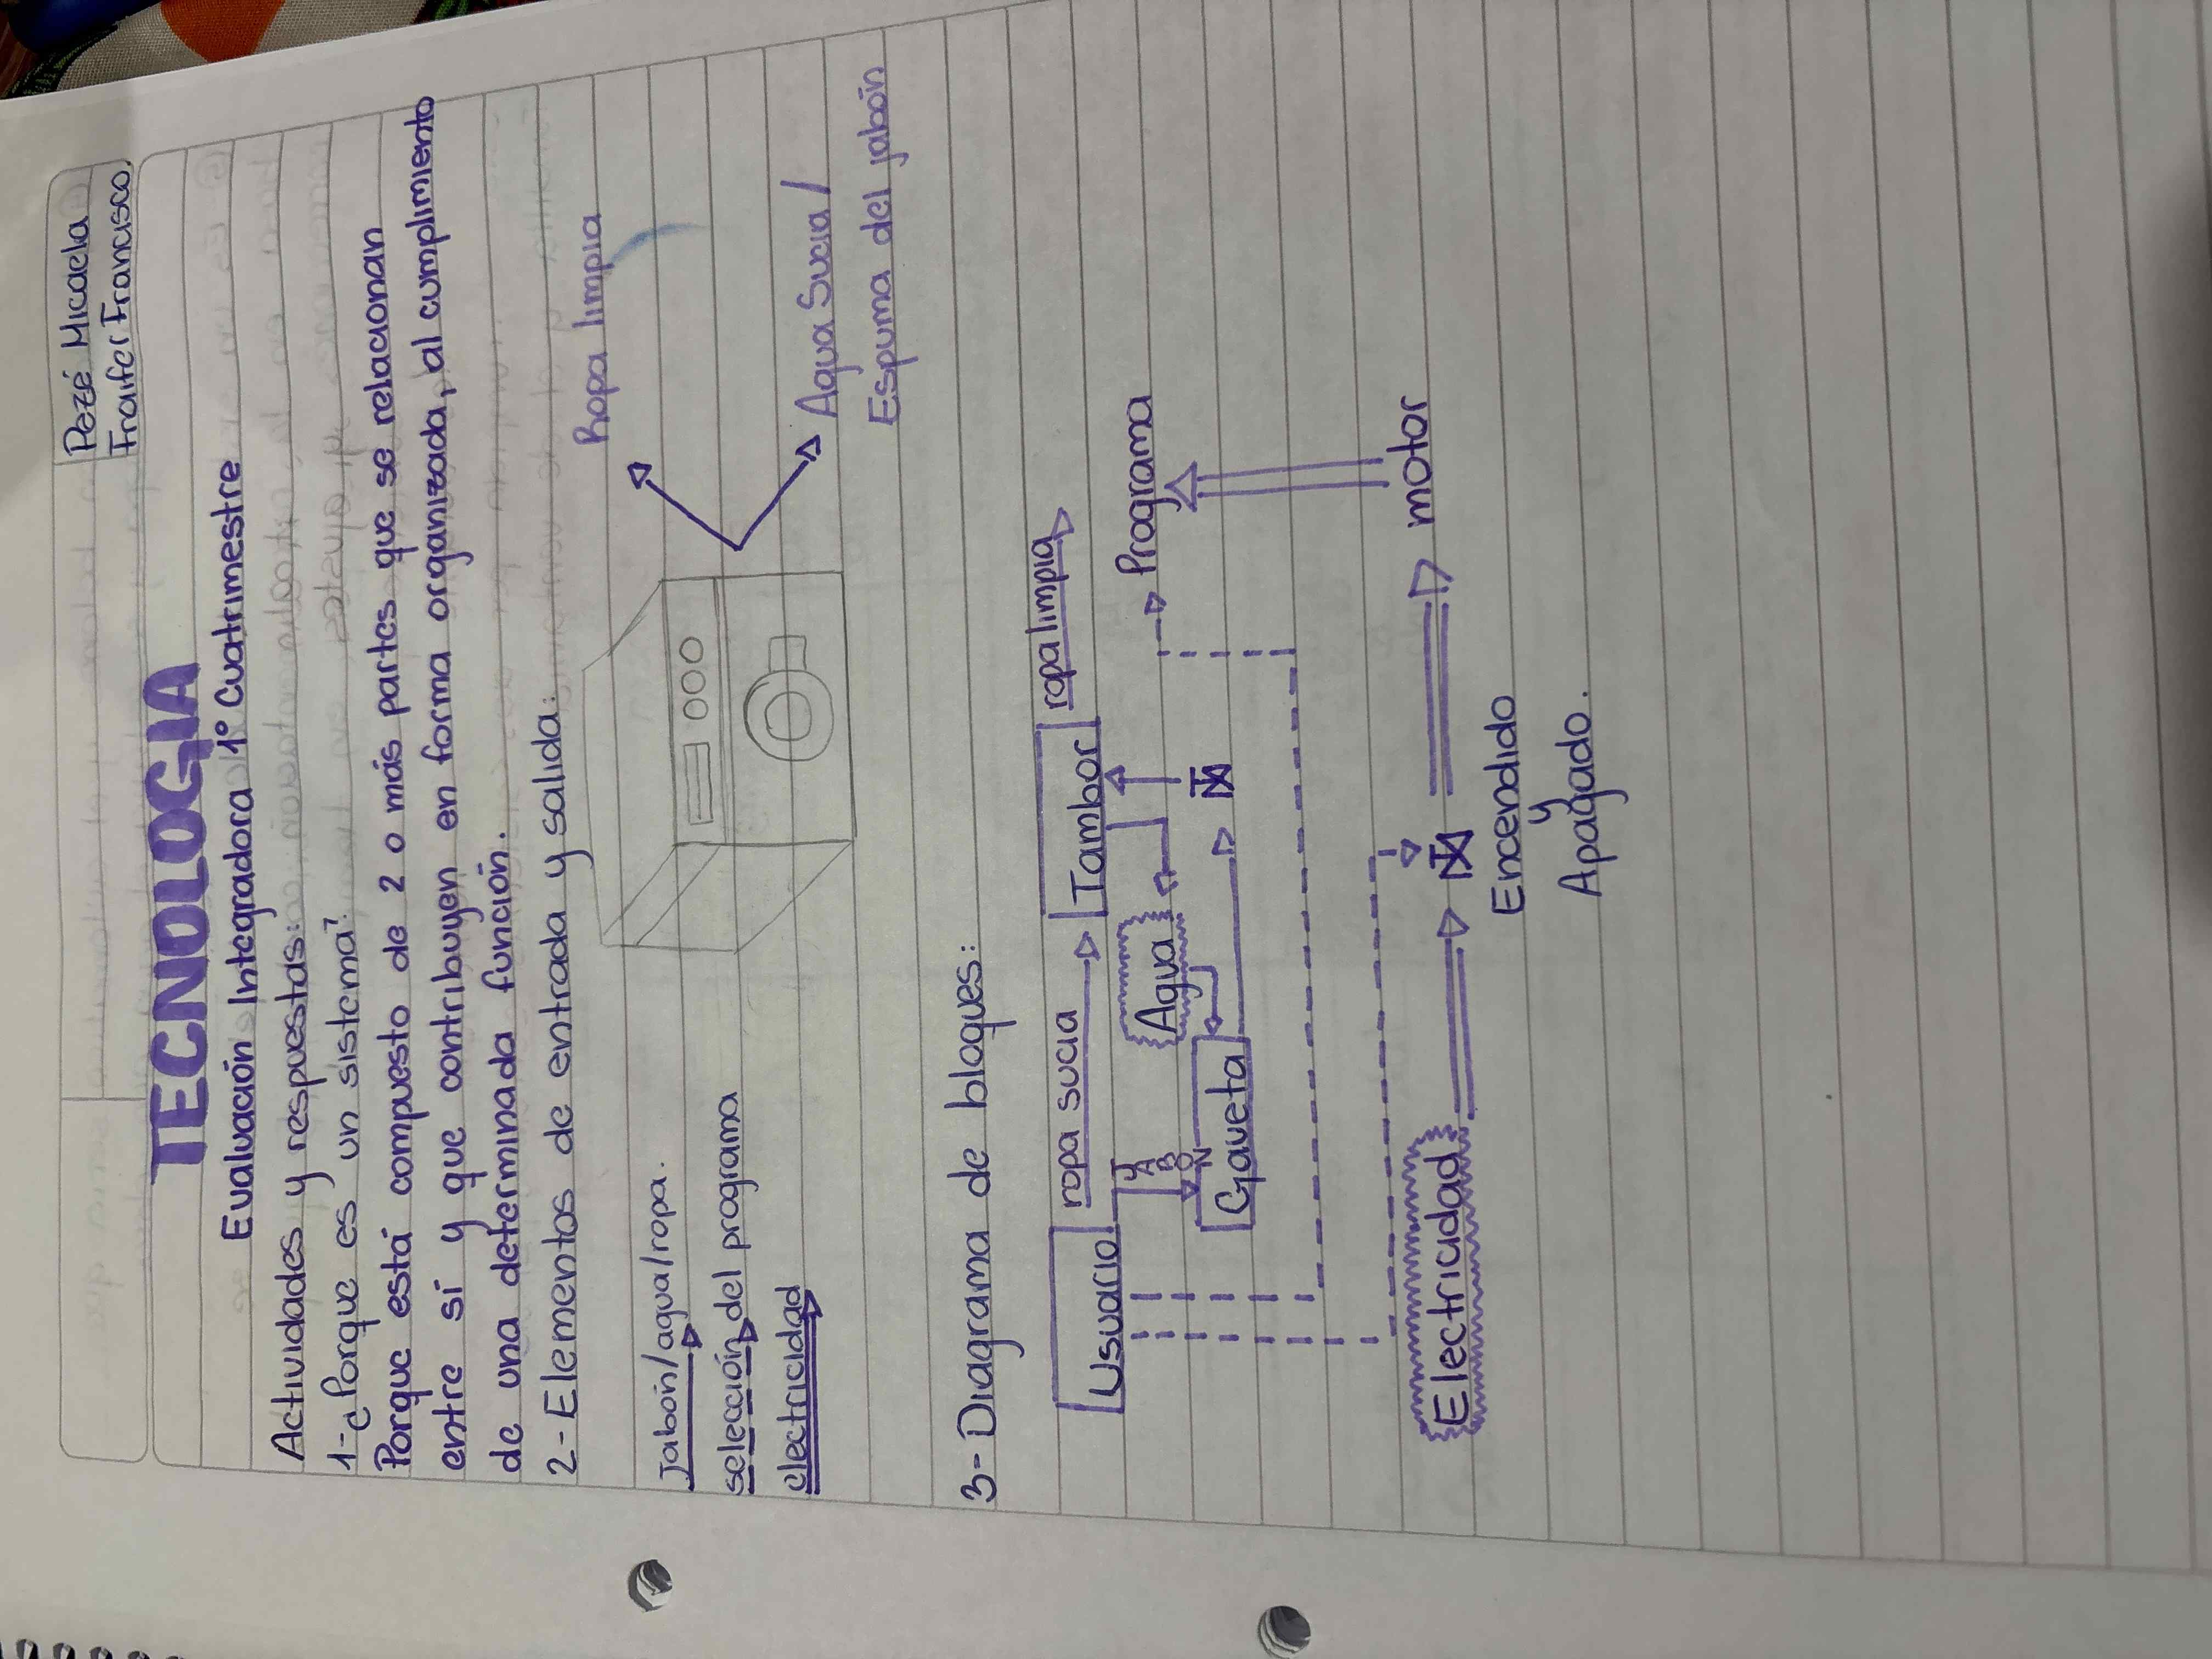 Pezé Micaela
Fraifer Francisco
TECNOLOGIA
Evaluación Integradora 1° Cuatrimestre
Actividades y respuestas:
1-¿Porque es un sistema?
Porque está compuesto de 2 o más partes que se relacionan
entre sí y que contribuyen en forma organizada, al cumplimiento
de una determinada función.
2-Elementos de entrada y salida:
Ropa limpia
Jabón/agua/ropa.
selección del programa
electricidad
Agua Sucia/
Espuma del jabón
3-Diagrama de bloques:
Usuario ropa sucia Tambor ropa limpia
JABON
Agua
Programa
Gaveta
Electricidad
motor
Encendido
y
Apagado.